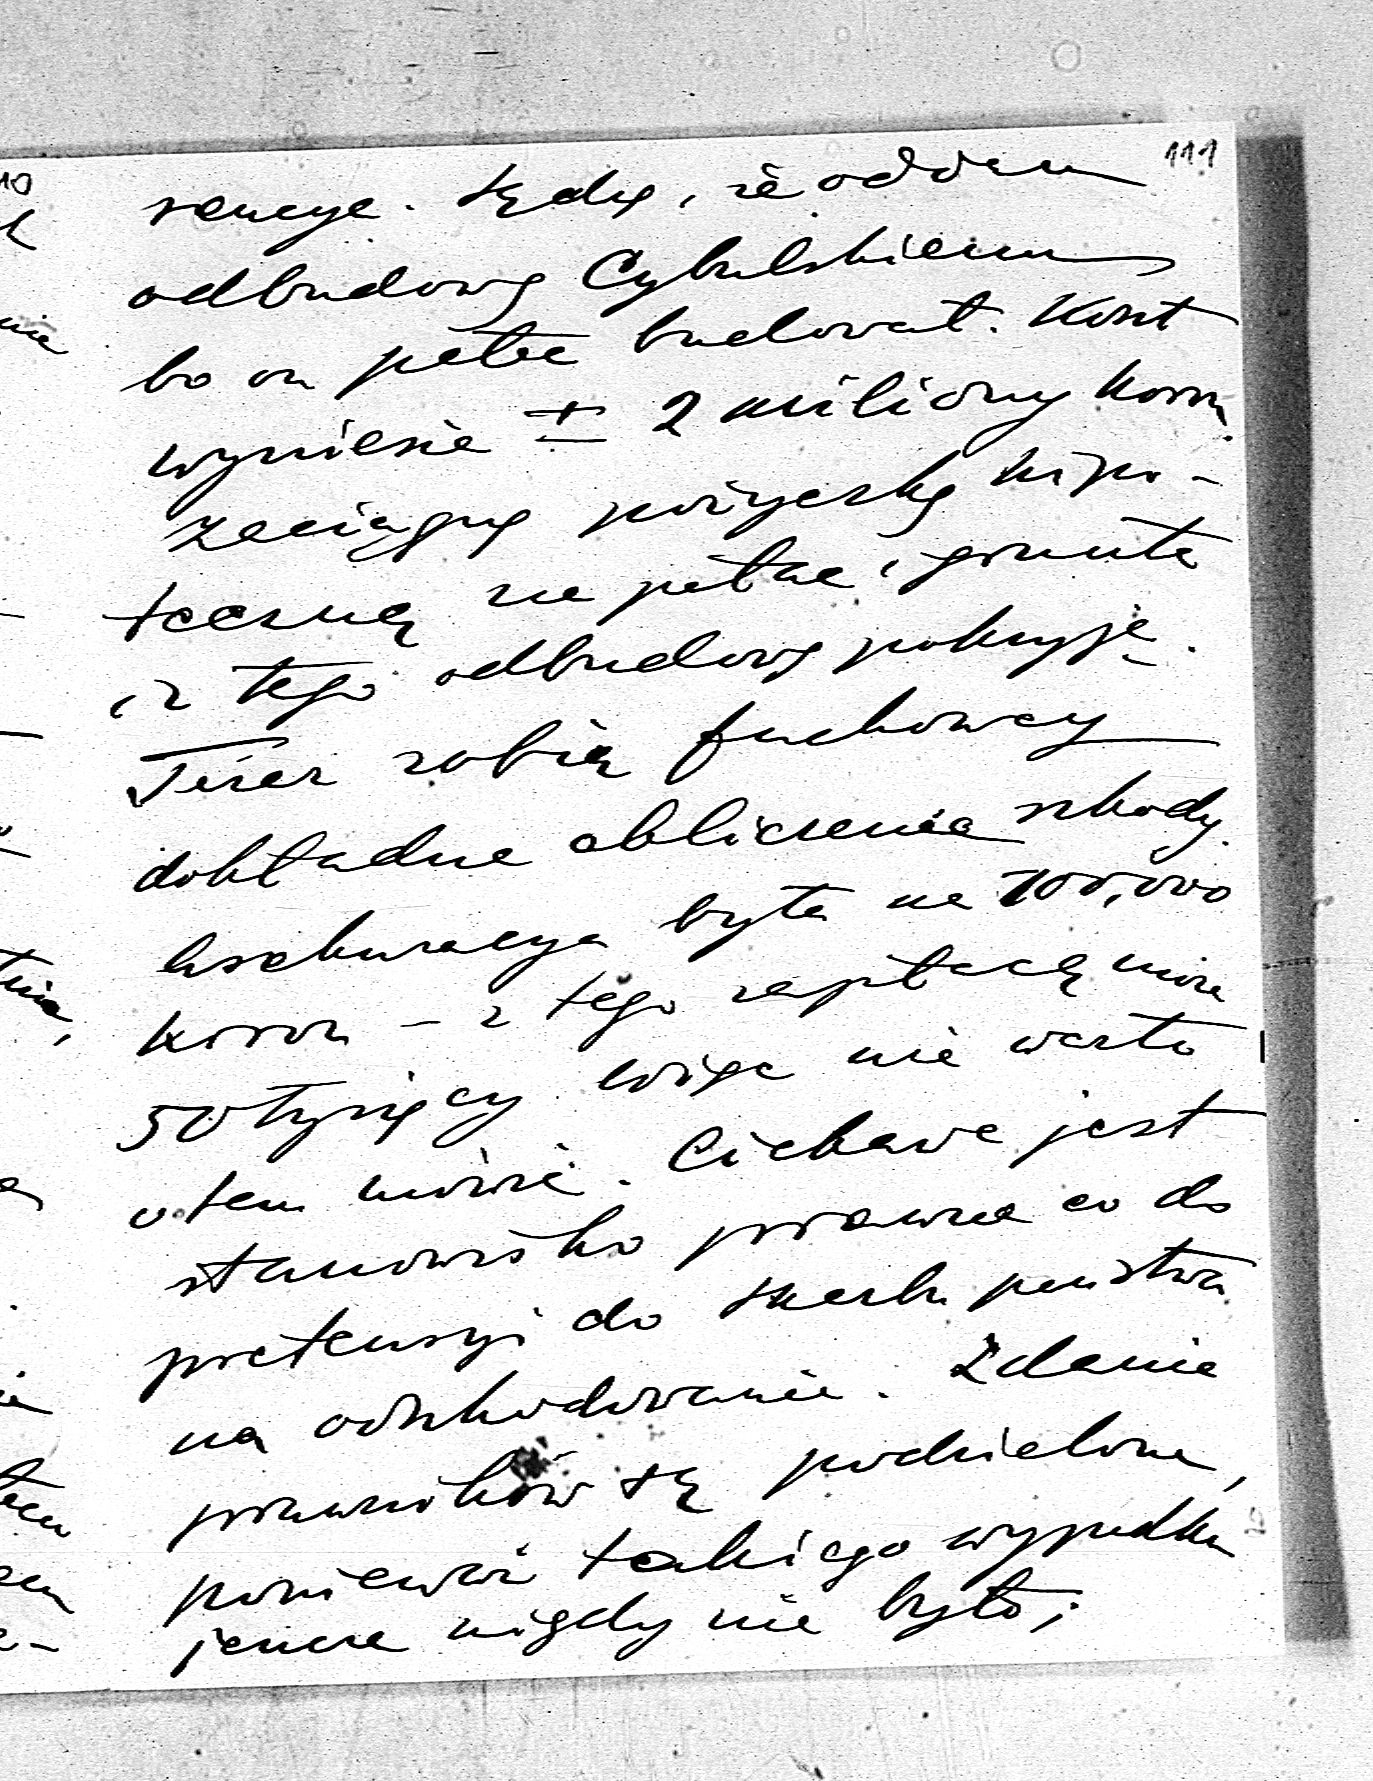 111
rencye. Sądzę, że oddam
odbudowę Cybulskiemu
bo on pałac budował. Koszt
wyniesie ± 2 miliony koron.
Zaciągnę pożyczkę hipo-
teczną na pałac i grunta
i z tego odbudowę pokryję.
Teraz robią fachowcy
dokładne obliczenia szkody.
Asekuracya była na 100,000
koron – z tego zapłacą może
50 tysięcy więc nie warto
o tem mówić. Ciekawe jest
stanowisko prawne co do
pretensyi do skarbu państwa
na odszkodowanie. Zdania
prawników są podzielone,
ponieważ takiego wypadku
jeszcze nigdy nie było;